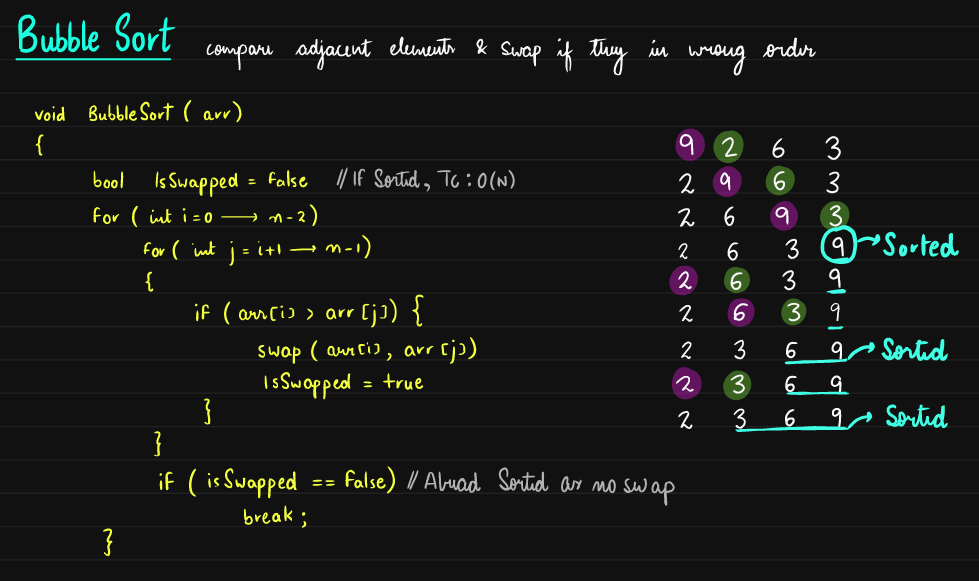 Bubble Sort compare adjacent elements & swap if they in wrong order
void BubbleSort ( arr)
{
bool IsSwapped = False // If Sorted, Tc : O(N)
for ( int i=0 → n-2)
for ( int j = i+1 → n-1)
{
if ( arr[i] > arr[j]) {
swap ( arr[i], arr[j])
IsSwapped = true
}
}
if ( isSwapped == False) // Alread Sorted as no swap
break ;
}
9 2 6 3
2 9 6 3
2 6 9 3
2 6 3 9 → Sorted
2 6 3 9
2 6 3 9
2 3 6 9 → Sorted
2 3 6 9
2 3 6 9 → Sorted